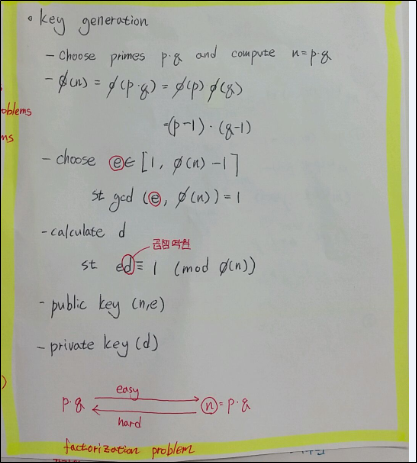 • key generation
- choose primes p·q and compute n=p·q
- ϕ(n) = ϕ(p·q) = ϕ(p) ϕ(q)
=(p-1)·(q-1)
- choose e∈ [1, ϕ(n)-1]
st gcd (e, ϕ(n)) = 1
- calculate d
곱셈역원
st ed ≡ 1 (mod ϕ(n))
- public key (n,e)
- private key (d)
easy
p·q n=p·q
hard
factorization problem
oblems
ms